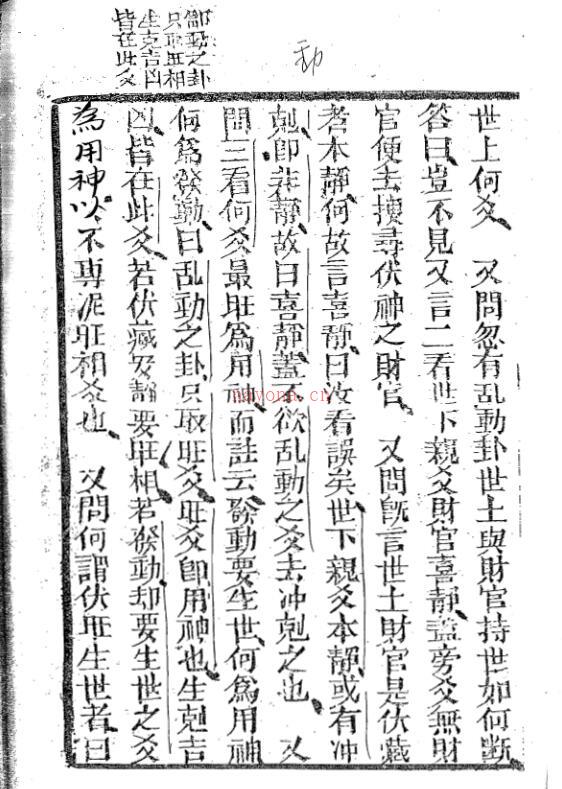 卽動之卦
只取旺相
生克吉凶
皆在此爻
世上何爻 又問忽有乱動卦世上與財官持世如何断
答曰豈不見又言二看世下親爻財官喜靜蓋旁爻無財
官便去搜尋伏神之財官 又問旣言世上財官是伏藏
者本靜何故言喜靜曰汝看誤矣世下親爻本靜或有冲
剋卽非靜故曰喜靜蓋不欲乱動之爻去冲剋之也 又
問三看何爻最旺為用神而註云發動要生世何為用神
何為發動曰乱動之卦只取旺爻旺爻卽用神也生剋吉
凶皆在此爻若伏藏安靜要旺相若發動却要生世之爻
為用神以不專泥旺相爻也 又問何謂伏旺生世者曰
nayona.cn